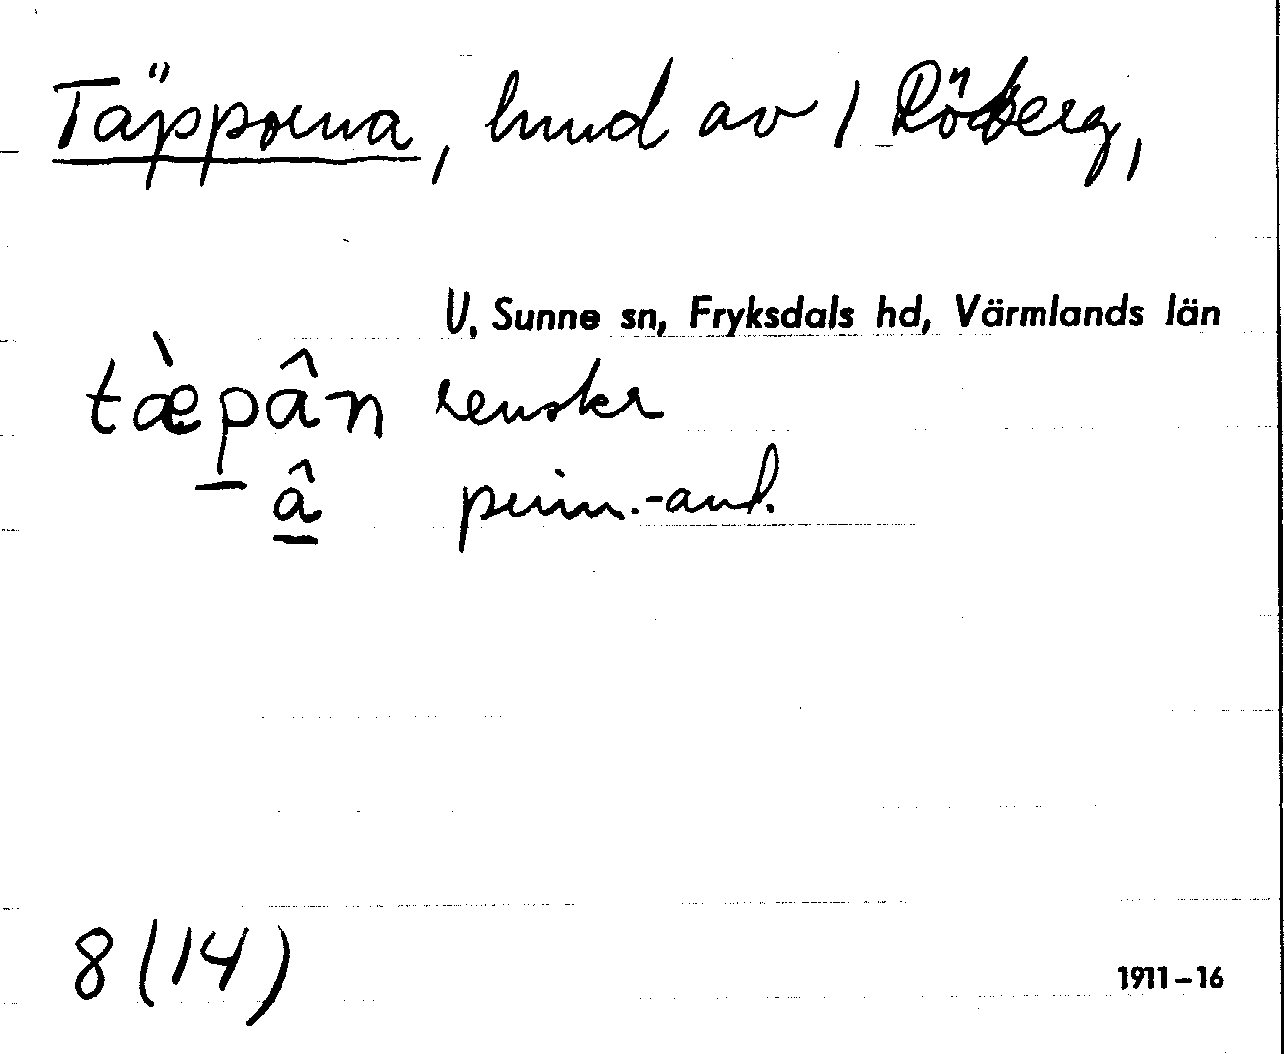 Täpporna, hmd av 1 Röberg,
V, Sunne sn, Fryksdals hd, Värmlands län
tæ̀pân renskr
â prim.-ant.
8(14)
1911-16